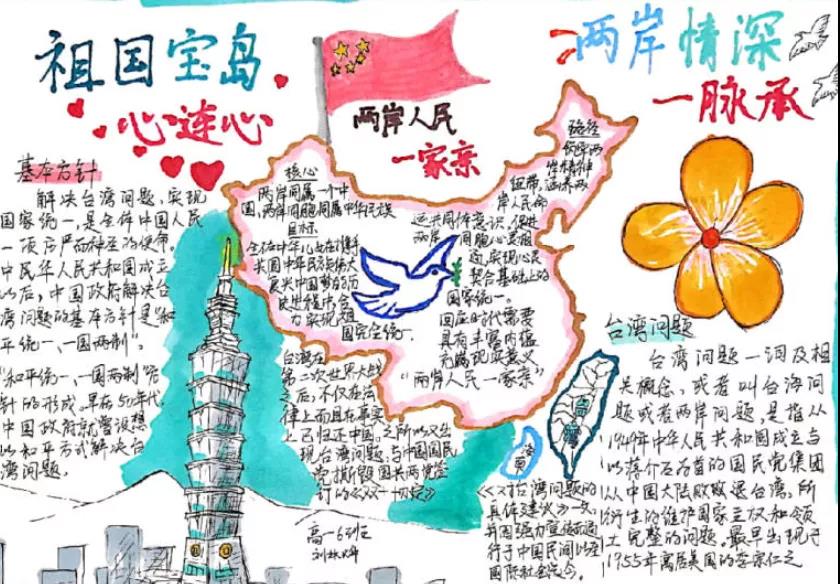 祖国宝岛
心连心
两岸人民
一家亲
两岸情深
一脉承
基本方针
解决台湾问题,实现
国家统一,是全体中国人民
一项庄严而神圣的使命。
中民华人民共和国成立
以后,中国政府解决台
湾问题的基本方针是“和
平统一、一国两制”。
“和平统一、一国两制”
针的形成。早在50年代,
中国政府就曾设想
以和平方式解决台
湾问题。
核心
两岸同属一个中
国,两岸同胞同属中华民族
目标
力实现祖
国完全统一
路径
纽带,涵养两
岸人民命
运共同体意识,促进
两岸同胞心灵相
通,实现心灵
契合基础上的
国家统一。
回应时代需要
具有丰富内涵
充满现实意义
“两岸人民一家亲”
台湾在
第二次世界大战
之后,不仅在法
律上而且在事实
上已归还中国,之所以又出
现台湾问题,与中国国民
党撕毁国共两党签
订的《双十协定》
高一6班
台湾
海南
《对台湾问题的
具体建议》一文,
行于中国民间以至
国际社会
台湾问题
台湾问题一词及相
关概念,或者叫台海问
题或者两岸问题,是指从
1949年中华人民共和国成立与
以蒋介石为首的国民党集团
从中国大陆败退台湾,所
衍生的维护国家主权和领
土完整的问题。最早出现于
1955年寓居美国的李宗仁之